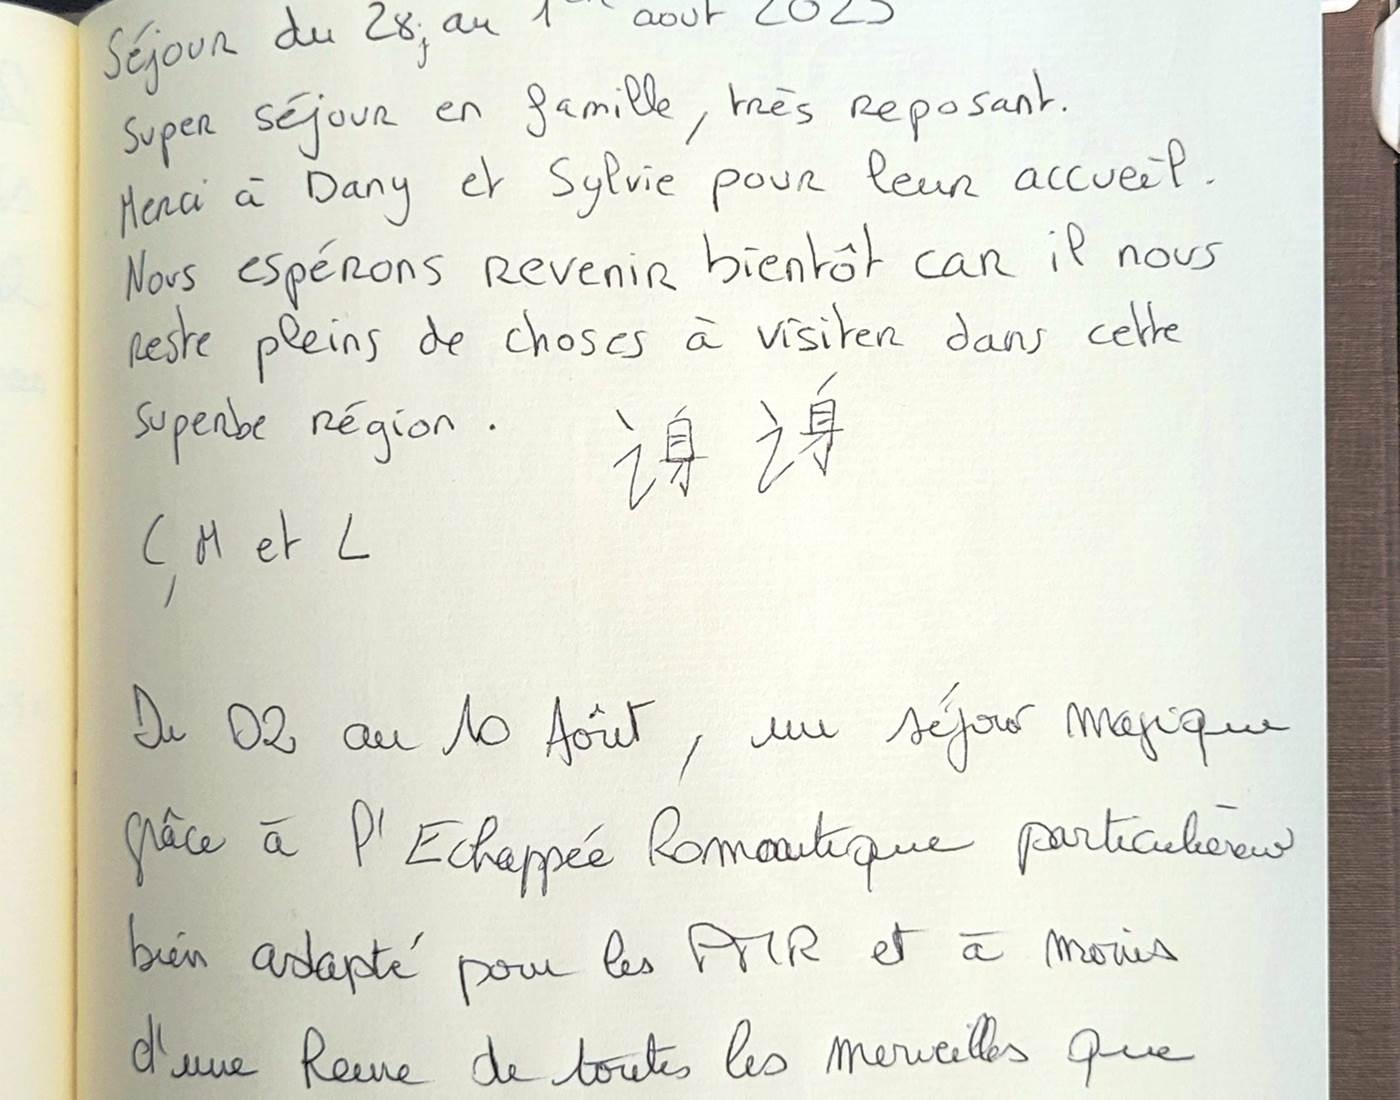 Séjour du 28j au 1er aout 2025
Super séjour en famille, très reposant.
Merci à Dany et Sylvie pour leur accueil.
Nous espérons revenir bientôt car il nous
reste pleins de choses à visiter dans cette
superbe région.
谢谢
C, M et L
Du 02 au 10 Août, un séjour magique
grâce à l'Echappée Romantique particulièrement
bien adapté pour les PMR et à moins
d'une heure de toutes les merveilles que